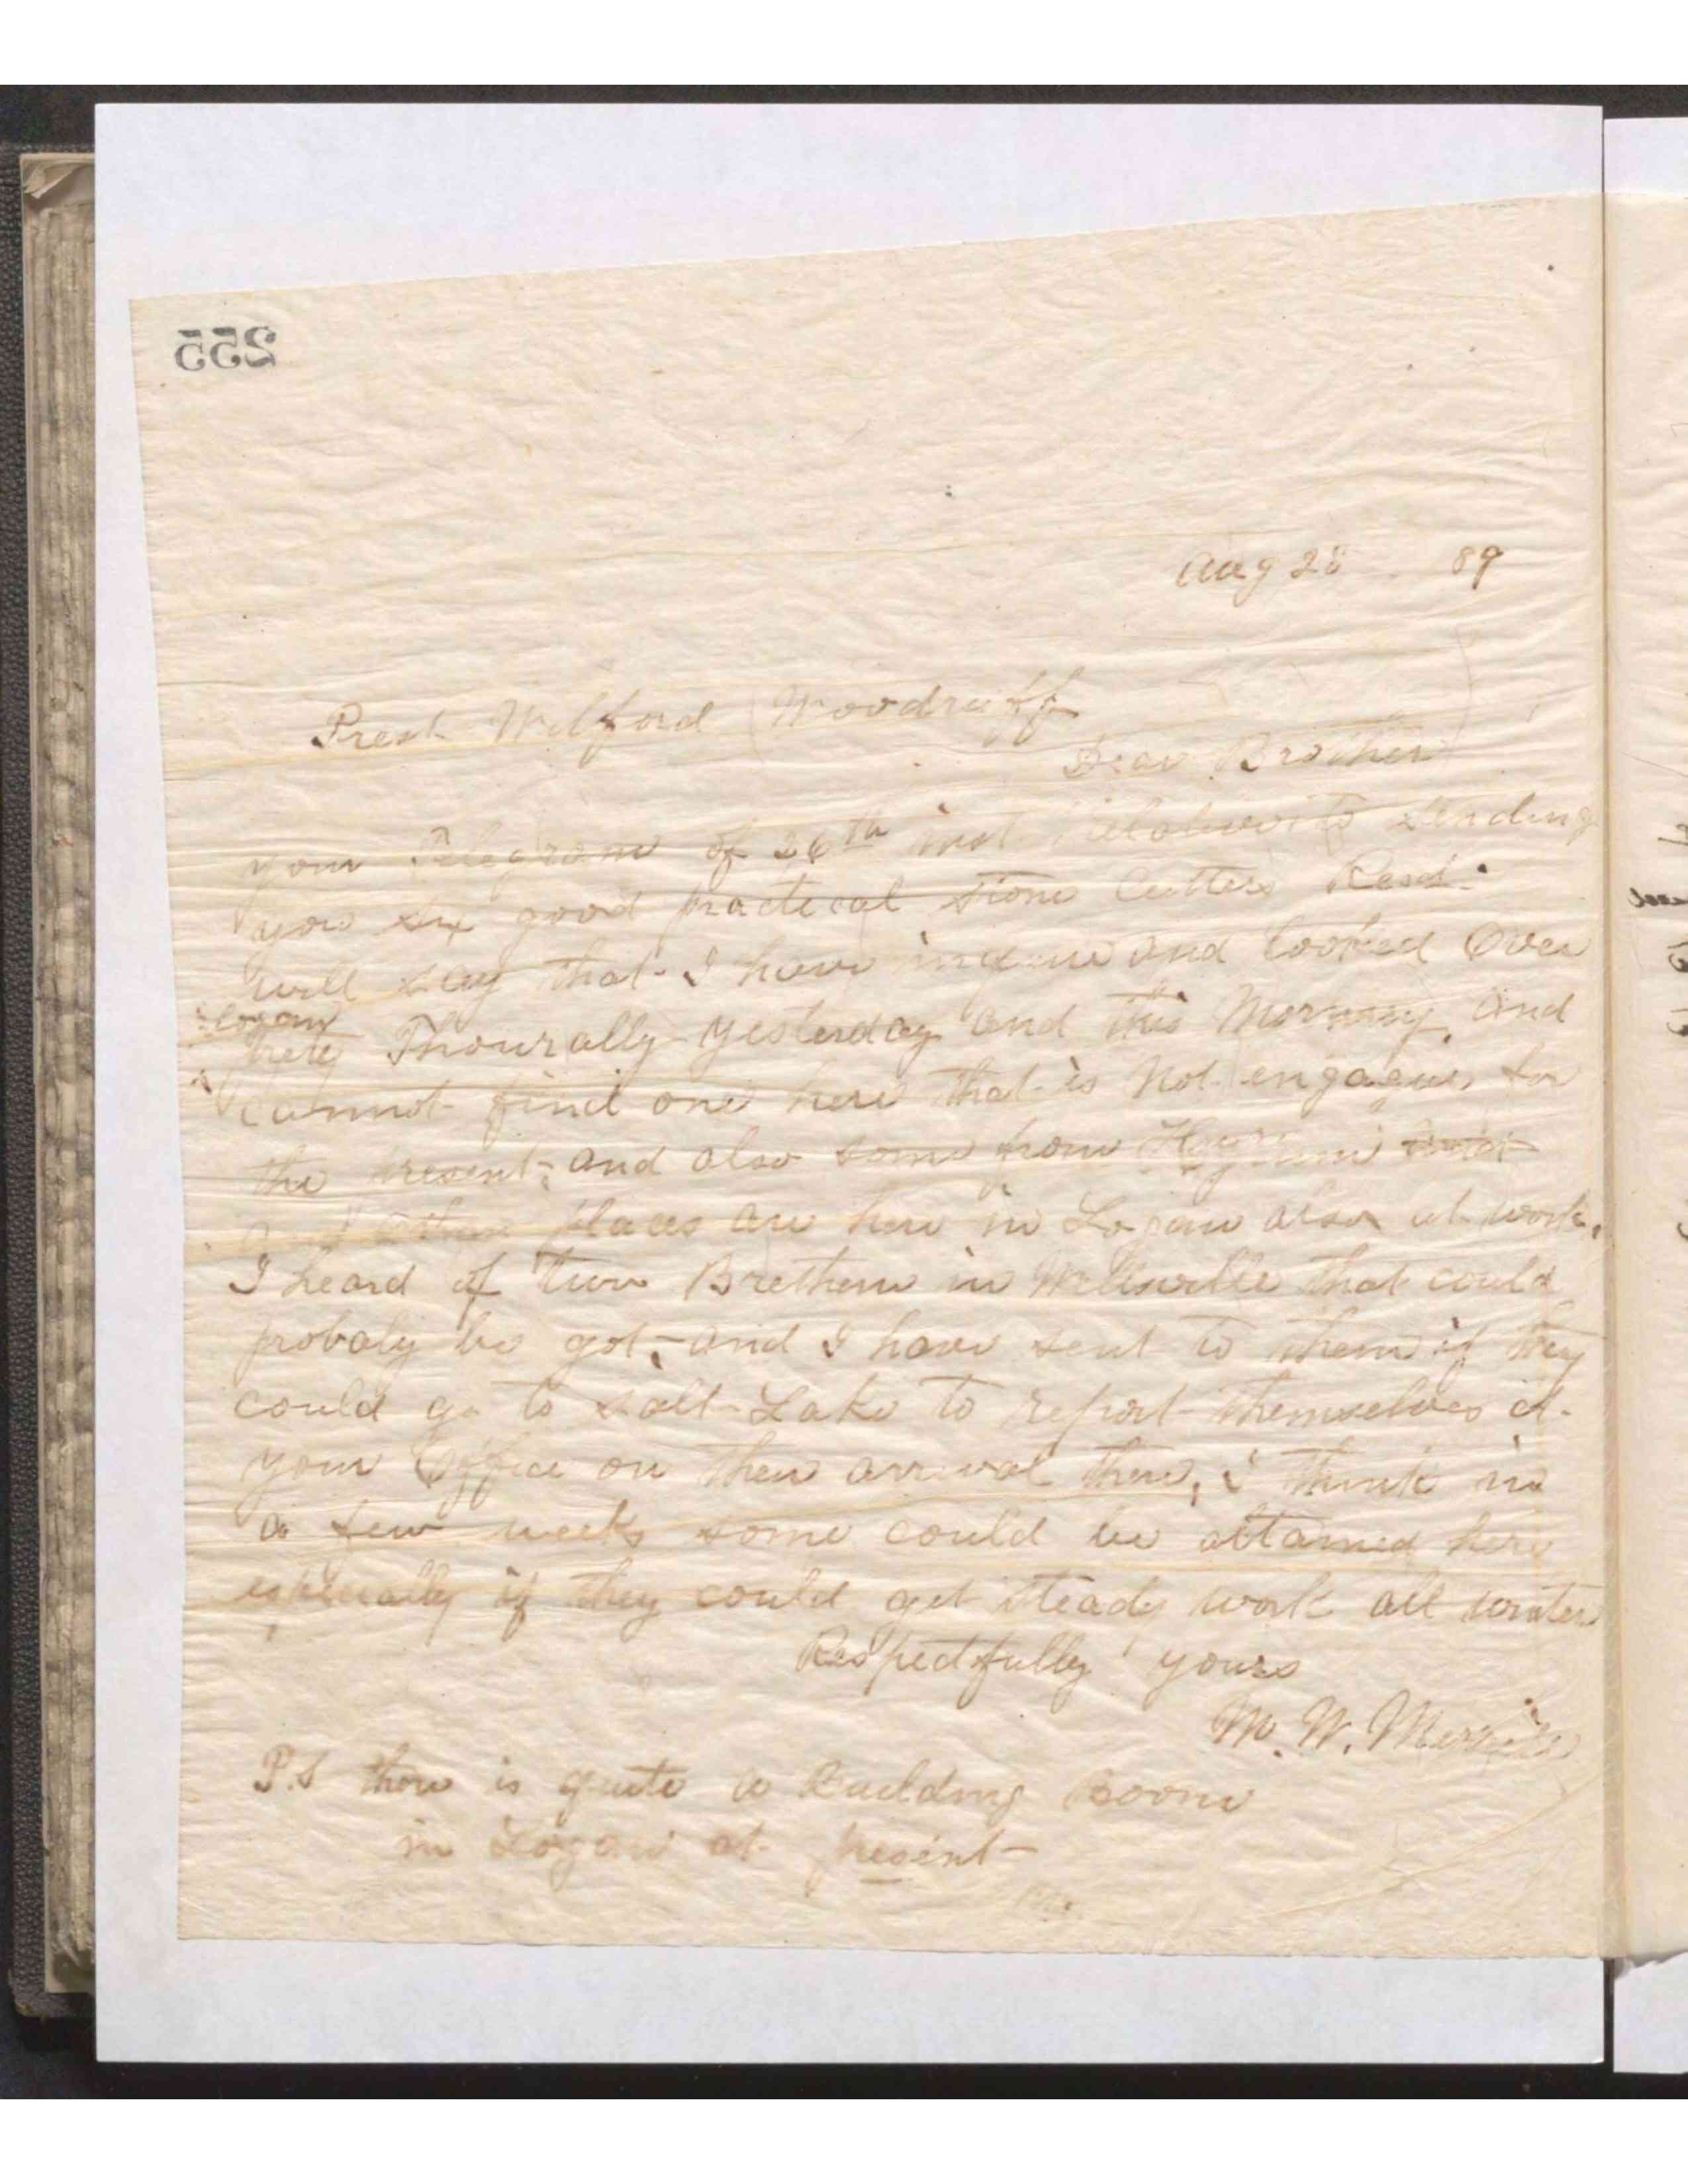 255
Aug 28 89
Prest Wilford Woodruff
Dear Brother
your Telegram of 26th inst Relative to sending
you six good practical stone Cutters Recd.
will say that I have inquire and looked Over
Logan
here Thourally yesterday and this Morning, and
cannot find one here that is Not engague, for
the present, and also some from Hyrum
and other places are here in Logan also at work.
I heard of two Brethern in Wellsville that could
probaly be got, and I have sent to them if they
could go to Salt Lake to report themselves at
your Office on their arrival there, I think in
a few weeks some could be attained here
espicually if they could get steady work all winter
Respectfully yours
M. W. Merrill
P.S there is quite a Building Boom
in Logan at present